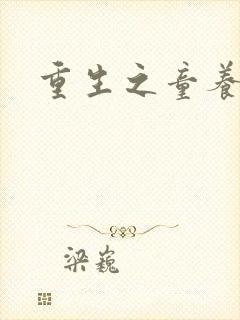 重生之童养
梁巍